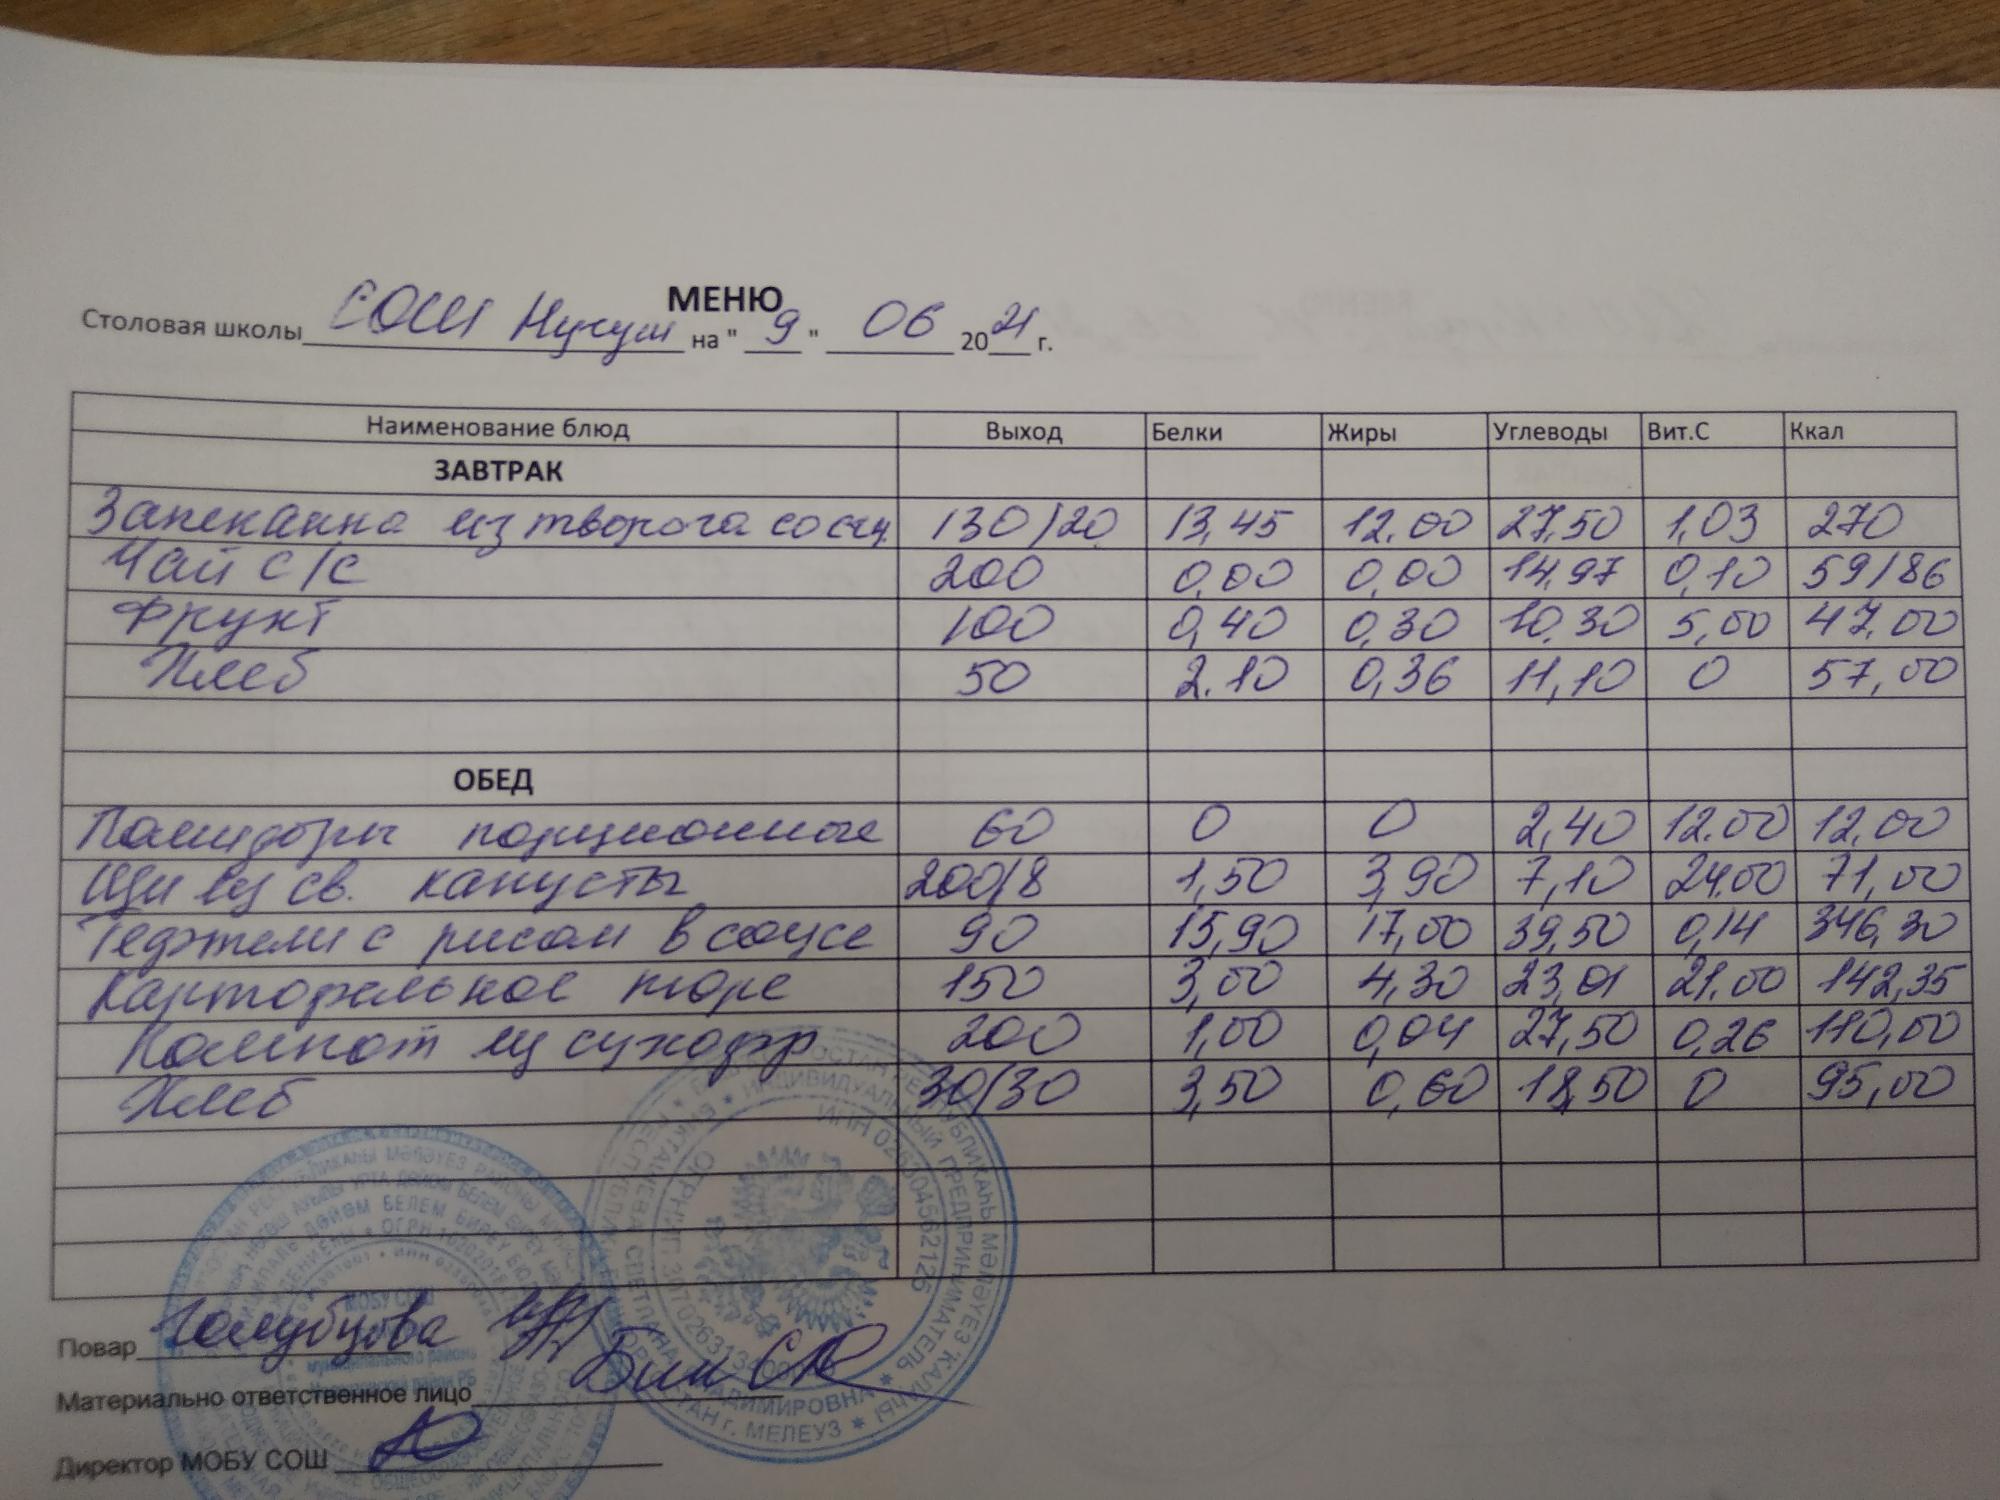 МЕНЮ
Столовая школы СОШ Нугуш на " 9 " 06 2021 г.
Наименование блюд Выход Белки Жиры Углеводы Вит.С Ккал
ЗАВТРАК
Запеканка из творога со сгщ. 130/20 13,45 12.00 27,50 1,03 270
Чай с/с 200 0,00 0,00 14,97 0,10 59/86
Фрукт 100 0,40 0,30 10,30 5,00 47,00
Хлеб 50 2.10 0,36 11,10 0 57,00
ОБЕД
Помидоры порционные 60 0 0 2,40 12.00 12,00
Щи из св. капусты 200/8 1,50 3,90 7,10 24,00 71,00
Тефтели с рисом в соусе 90 15,90 17,00 39,50 0,14 346,30
Картофельное пюре 150 3,00 4,30 23,01 21.00 142,35
Компот из сухофр 200 1,00 0,04 27,50 0,26 110,00
Хлеб 30/30 3,50 0,60 18,50 0 95,00
ИНДИВИДУАЛЬНЫЙ ПРЕДПРИНИМАТЕЛЬ
ИНН 026304562125
г. МЕЛЕУЗ
МОБУ СОШ
Повар Голубцова
Материально ответственное лицо
Директор МОБУ СОШ